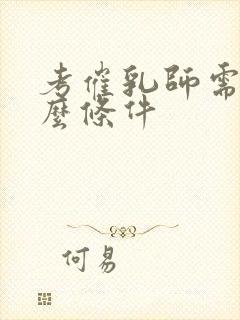 考催乳師需
麼條件
何易